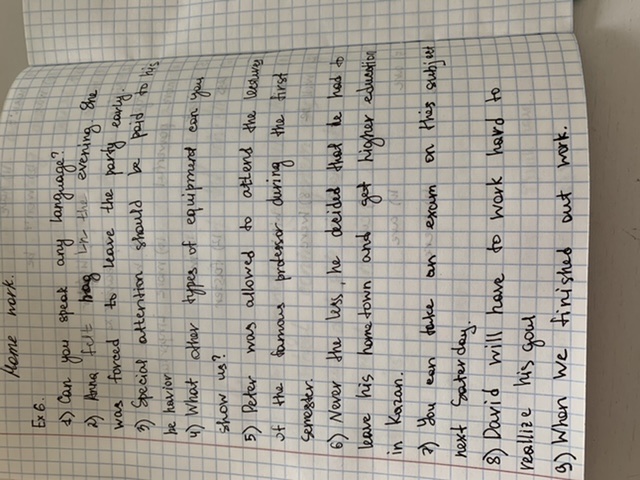 Home work.
Ex 6.
1) Can you speak any language?
2) Anna felt in the evening She
was forced to leave the party early.
3) Special attention should be paid to his
be havior
4) What other types of equipment can you
show us?
5) Peter was allowed to attend the lectures
of the famous professor during the first
semester.
6) Never the less, he decided that he had to
leave his home town and get higher education
in Kazan.
7) You can take an exam on this subject
next Saterday.
8) David will have to work hard to
reallize his goul
9) When we finished out work.